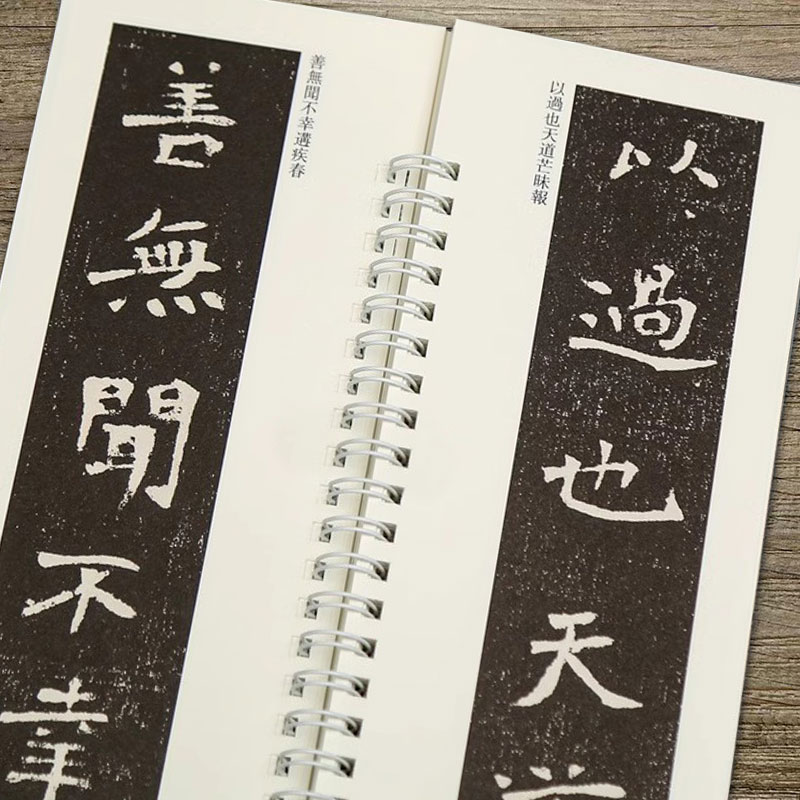 以過也天
以過也天道芒昧報
善無聞不幸遘疾春
善無聞不幸